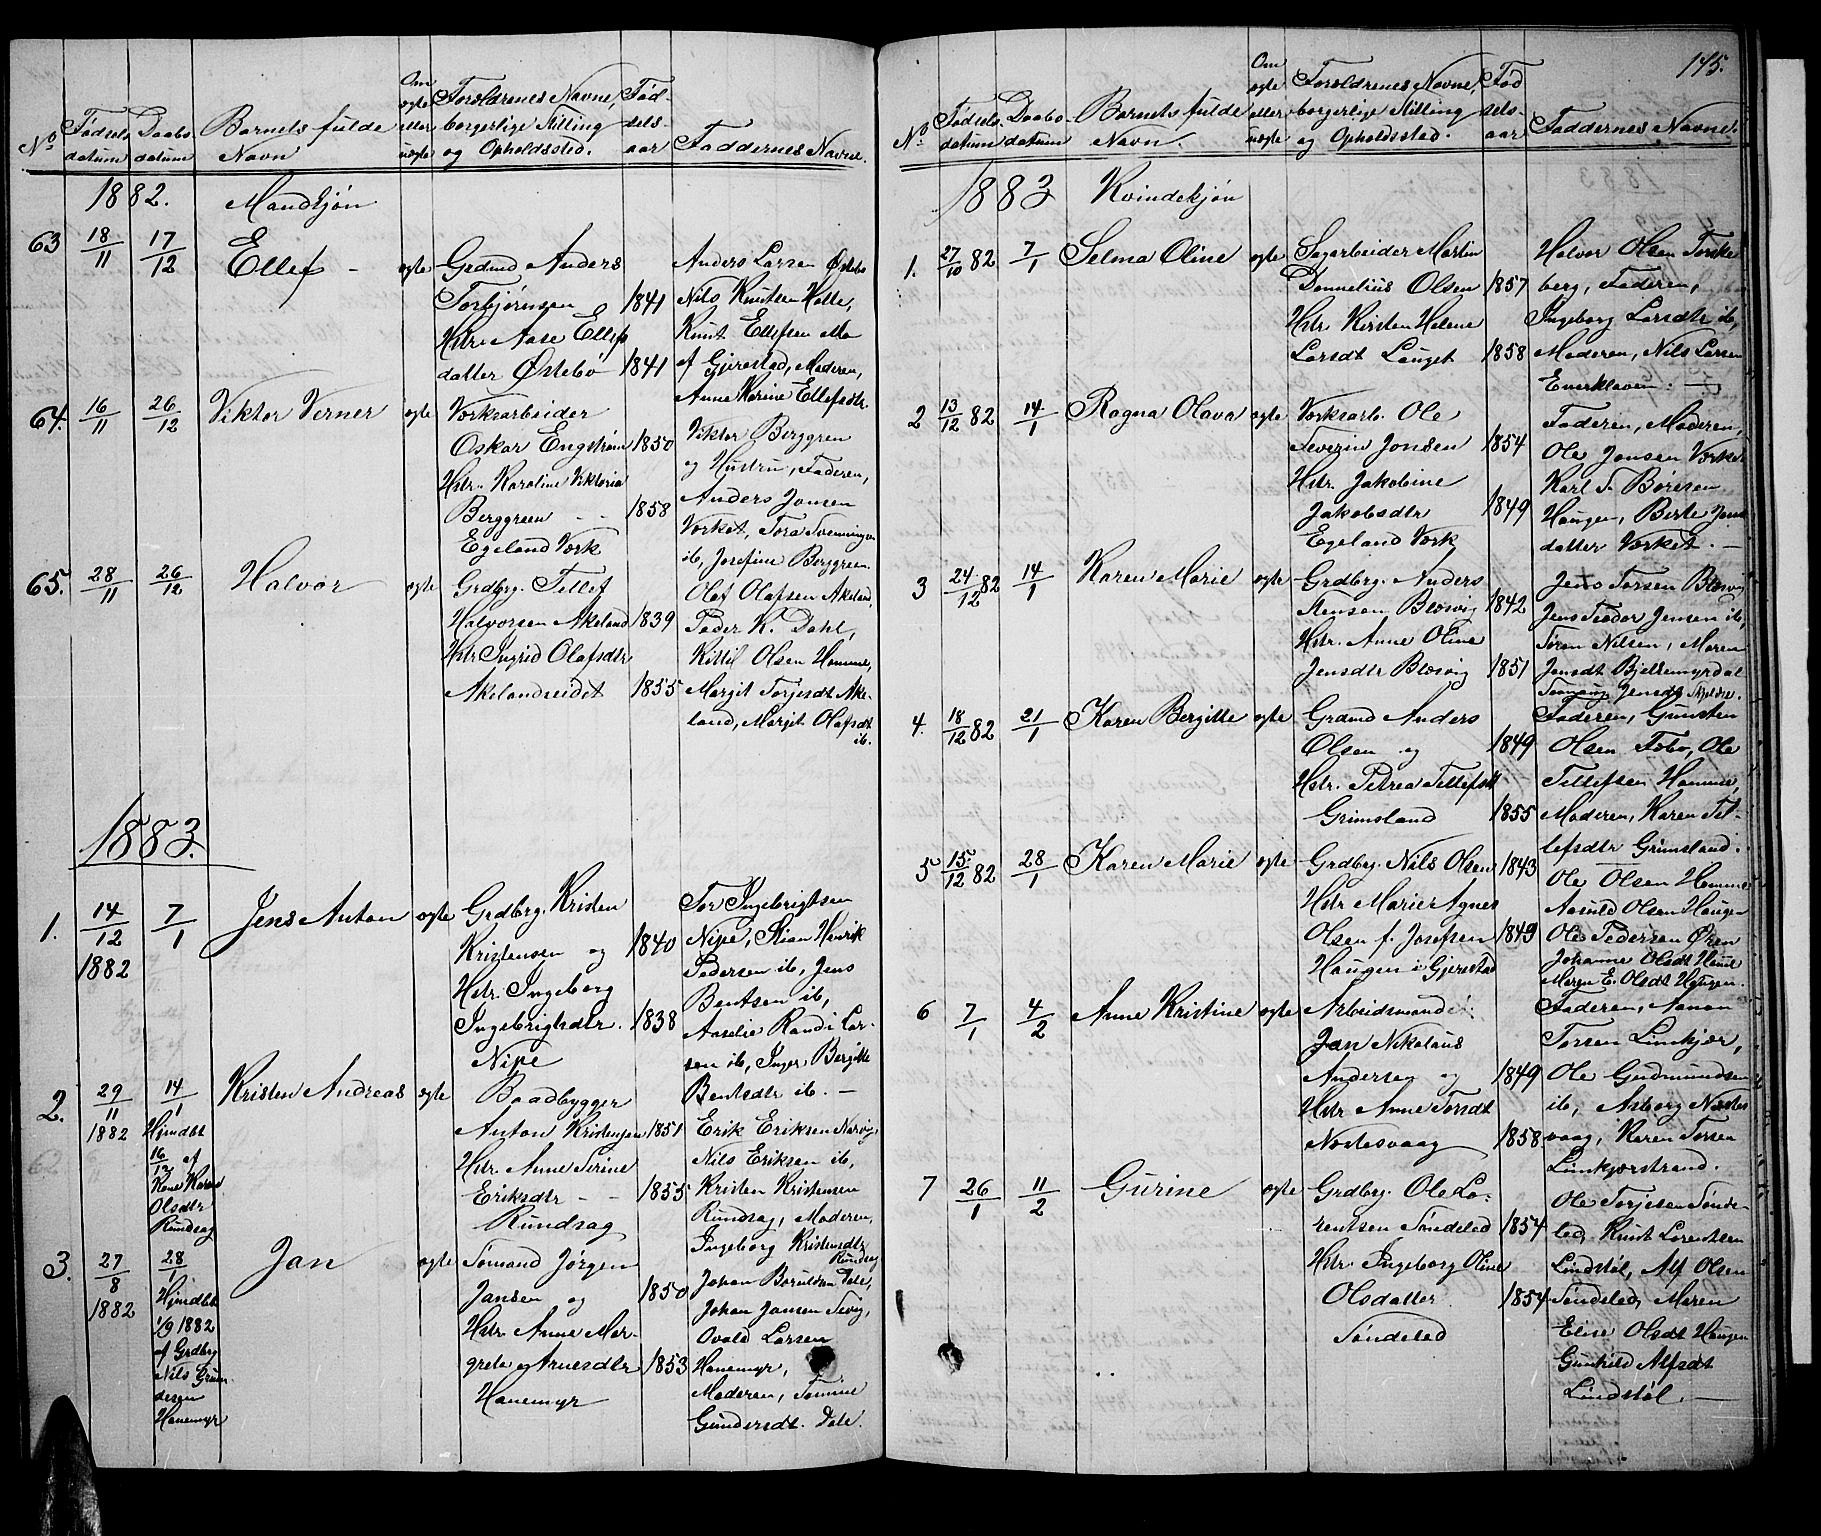 No
Fødsels
datum
Daabs-
datum
Barnets fulde
Navn
Om
ægte
eller
uægte
Forældrenes Navne,
borgerlige Stilling
og Opholdssted.
Fød-
sels-
aar
Faddernes Navne.
1882.
Mandkjøn
63
18/11
17/12
Ellef -
ægte
Grdmd Anders
Torbjørnsen
1841
Hstr. Aase Ellefs
datter Østebø
1841
Anders Larsen Østebø
Nils Knutsen Holte,
Knut Ellefsen Mo
af Gjerestad, Moderen,
Anne Karine Ellefsdtr.
64.
16/11
26/12
Viktor Verner
ægte
Værksarbeider
Oskar Engstrøm
1850
Hstr. Karoline Viktoria
Berggreen - -
1858
Egeland Værk
Viktor Berggren
og Hustru, Faderen,
Anders Jansen
Værket, Tora Svenningsen
ib, Josefine Berggreen
65.
28/11
26/12
Halvor
ægte
Grdbrg. Tellef
Halvorsen Akeland
1839
Hstr Ingrid Olafsdtr
Akelandseidet
1855
Olaf Olafsen Akeland,
Peder K. Dahl,
Kittil Olsen Hamme,
Margit Torjesdt Ake-
land, Margit Olafsdt
ib.
1883.
1.
14/12
1882
7/1
Jens Anton
ægte
Grdbrg. Kristen
Kristensen og
1840
Hstr. Ingeborg
Ingebrigtsdtr.
1838
Nipe
Tor Ingebrigtsen
Nipe, Stian Henrik
Pedersen ib, Jens
Bentsen ib,
Aaselie Randi Lar-
sen ib, Inger Bergitte
Bentsdtr ib. -
2.
29/11
1882
14/1
Hjmdbt
16/12 af
Kone Karen
Olsdtr
Rundsag
Kristen Andreas
ægte
Baadbygger
Anton Kristensen
1851
Hstr. Anne Serine
Eriksdtr - -
1855
Rundsag
Erik Eriksen Narvig,
Nils Eriksen ib,
Kristen Kristensen
Rundsag, Moderen,
Ingeborg Kristensdtr
Rundsag
3.
27/8
1882
28/1
Hjmdbt
1/9 1882
af Grdbrg
Nils Gun-
dersen
Hanemyr
Jan
ægte
Sømand Jørgen
Jansen og
1850
Hstr. Anne Mar-
grete Arnesdtr
1853
Hanemyr
Johan Jansen Sevig,
Ovald Larsen
Hanemyr,
Moderen,
Gundersdt. Dale.
145.
No
Fødsels
datum
Daabs-
datum
Barnets fulde
Navn.
Om
ægte
eller
uægte
Forældrenes Navne,
borgerlige Stilling
og Opholdssted.
Fød
sels-
aar
Faddernes Navne.
1883
Kvindekjøn
1.
27/10 82
7/1
Selma Oline
ægte
Sagarbeider Martin
Donnelius Olsen
1857
Hstr. Kirsten Helene
Larsdt Lauget
1858
Halvor Olsen Torske
berg, Faderen,
Ingeborg Larsdtr ib,
Moderen, Nils Larsen
Enerkleven. -
2
13/12 82
14/1
Ragna Olava
ægte
Værksarb. Ole
Severin Jensen
1854
Hstr. Jakobine
Jakobsdtr
1849
Egeland Værk
Faderen, Moderen,
Ole Jensen Værket
Karl S. Børesen
Haugen, Berte Jens
datter Værket. -
3
24/12 82
14/1
Karen Marie
ægte
Grdbrg. Anders
Stensen Blæsvig
1842
Hstr. Anne Oline
Jensdtr Blæsvig
1851
Jens Torsen Blæsvig
Jens Teodor Jensen ib,
Søren Nilsen, Maren
Jensdt Bjellemyrdal
4.
18/12 82
21/1
Karen Bergitte
ægte
Grdmd Anders
Olsen og
1849
Hstr. Petrea Tellefsdt
Grimsland
1855
Faderen, Gunsten
Olsen Fæbo, Ole
Tellefsen Hamme,
Moderen, Karen Tel-
lefsdtr Grimsland.
5
15/12 82
28/1
Karen Marie
ægte
Grdbrg. Nils Olsen
1843
Hstr Marie Agnes
Olsen f. Josefsen
1849
Haugen i Gjerestad
Ole Olsen Hamme
Aasuld Olsen Haugen
Ole Pedersen Øren
Johanne Olsdt
Maren E. Olsdt Haugen.
6
7/1
4/2
Anne Kristine
ægte
Arbeidsmand
Jan Nikolaus
Andersen og
1849
Hstr Anne Torsdt
Nostesvaag
1858
Faderen, Aanon
Torsen Limkjær,
Ole Gudmundsen
ib, Asborg Nostes
vaag, Karen Torsen
Limkjærstrand.
7
26/1
11/2
Gurine
ægte
Grdbrg. Ole Lo-
rentsen Søndeled
1854
Hstr. Ingeborg Oline
Olsdatter
1854
Søndeled
Ole Torjesen Sønde-
led, Knut Lorentsen
Lindstøl, Alf Olsen
Søndeled, Maren
Elise Olsdt Haugen
Gunhild Alfsdt
Lindstøl. -